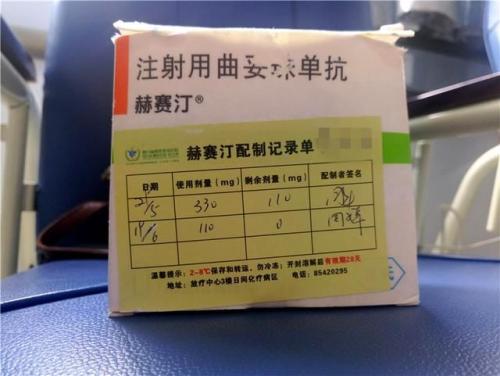 注射用曲妥珠单抗
赫赛汀®
赫赛汀配制记录单
日期 使用剂量(mg) 剩余剂量(mg) 配制者签名
330 110
110 0
温馨提示:2-8℃保存和转运,勿冷冻;开封溶解后有效期28天
地址:放疗中心3楼日间化疗病区 电话:85420295